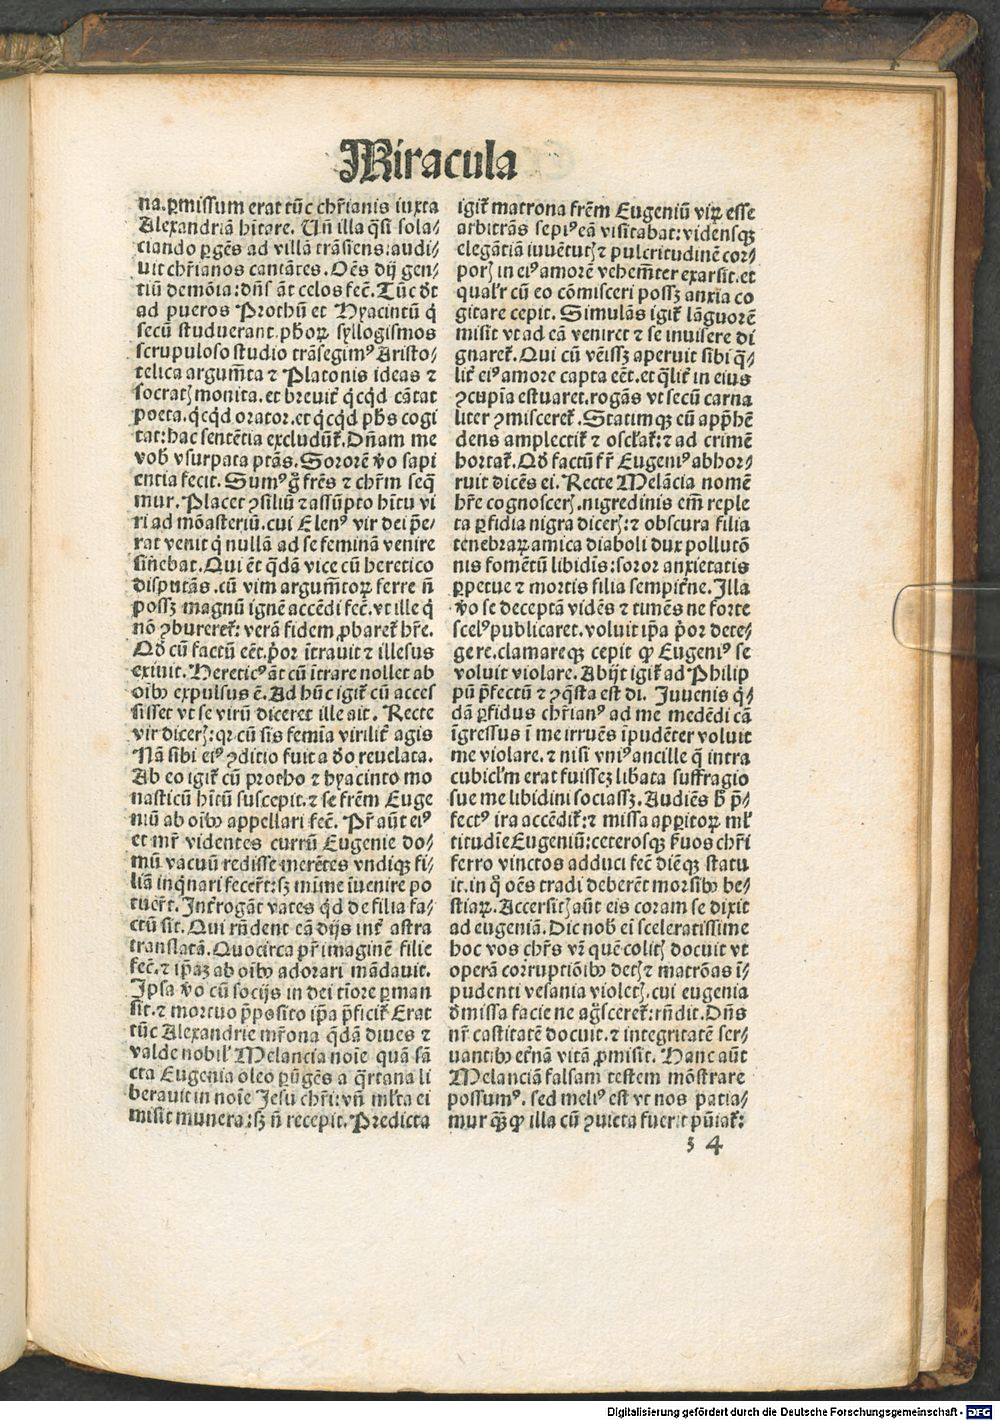 Miracula
na. ꝑmissum erat tūc chr̄ianis iuxta
Alexandriā hītare. Un̄ illa q̄si sola⸗
ciando ꝑgēs ad villā trāsiens: audi⸗
uit chr̄ianos cantātes. Oēs dij gen⸗
tiū demōia: dn̄s āt celos fec̄. Tūc d̄t
ad pueros Prothū et Hyacintū q̄
secū studuerant. pb̄oꝝ syllogismos
scrupuloso studio trāsegimꝰ Aristo⸗
telica argum̄ta ⁊ Platonis ideas ⁊
socratꝭ monita. et breuit̄ q̇cq̇d cātat
poeta. q̇cq̇d orator. et q̇cq̇d pb̄s cogi
tat: hac sentētia excludūt̄. Dn̄am me
vob̄ vsurpata ptās. Sororē v̄o sapi
entia fecit. Sumꝰ g̊ frēs ⁊ chr̄m seq̄
mur. Placet ꝯsiliū ⁊ assūpto hītu vi
ri ad mōasteriū. cui Elenꝰ vir dei p̄e⸗
rat venit q̇ nullā ad se feminā venire
sin̄ebat. Qui ēt q̄dā vice cū heretico
disputās. cū vim argum̄toꝝ ferre n̄
possꝫ magnū ignē accēdi fec̄. vt ille q̇
nō ꝯbureret̄: verā fidem ꝓbaret̄ hr̄e.
Qd̄ cū factū eēt. ṗor ītrauit ⁊ illesus
exiuit. Hereticꝰ āt cū ītrare nollet ab
oībꝰ expulsus ē. Ad hūc igit̄ cū acces
sisset vt se virū diceret ille ait. Recte
vir dicerꝭ: qꝛ cū sis femīa virilit̄ agis
Nā sibi eiꝰ ꝯditio fuit a d̄o reuelata.
Ab eo igit̄ cū protho ⁊ hyacinto mo
nasticū hītū suscepit. ⁊ se frēm Euge
niū ab oībꝰ appellari fec̄. Pr̄ aūt eiꝰ
et mr̄ videntes currū Eugenie do⸗
mū vacuū redisse merētes vndiqꝫ fi⸗
liā inq̇nari fecer̄t: sꝫ mīme īuenire po
tuer̄t. Int̄rogāt vates q̇d de filia fa⸗
ctū sit. Qui rn̄dent eā dijs int̄ astra
translatā. Quocirca pr̄ imaginē filie
fec̄. ⁊ ip̄aꝫ ab oībꝰ adorari mādauit.
Ipsa v̄o cū socijs in dei tīore ꝑman
sit. ⁊ mortuo p̄posito ip̄a p̄ficit̄ Erat
tūc Alexandrie mr̄ona q̄dā diues ⁊
valde nobil̕ Melancia noīe quā sā
cta Eugenia oleo ꝑūgēs a q̄rtana li
berauit in noīe Jesu chr̄i: vn̄ ml̕ta ei
misit munera: sꝫ n̄ recepit. Predicta
igit̄ matrona frēm Eugeniū viꝝ esse
arbitrās sepiꝰ eā visitabat: vidensqꝫ
elegātiā iuuētutꝭ ⁊ pulcritudinē cor⸗
porꝭ in eiꝰ amorē vehem̄ter exarsit. et
qual̕r cū eo cōmisceri possꝫ anxia co
gitare cepit. Simulās igit̄ lāguorē
misit vt ad eā veniret ⁊ se inuisere di
gnaret̄. Qui cū vēissꝫ aperuit sibi q̄⸗
lit̄ eiꝰ amore capta eēt. et q̄lit̄ in eius
ꝯcupīa estuaret. rogās vt secū carna
liter ꝯmisceret̄. Statimqꝫ cū app̄hē
dens amplectit̄ ⁊ oscl̕at̄: ⁊ ad crimē
hortat̄. Qd̄ factū fr̄ Eugeniꝰ abhor⸗
ruit dicēs ei. Recte Melācia nomē
hr̄e cognoscerꝭ. nigredinis em̄ reple
ta ꝑfidia nigra dicerꝭ: ⁊ obscura filia
tenebraꝝ amica diaboli dux pollutō
nis fomētū libidīs: soror anxietatis
ꝑpetue ⁊ mortis filia sempit̄ne. Illa
v̄o se deceptā vidēs ⁊ timēs ne forte
scelꝰ publicaret. voluit ip̄a ṗor dete⸗
ge re. clamareqꝫ cepit ꝙ Eugeniꝰ se
voluit violare. Abijt igit̄ ad Philip
pū p̄fectū ⁊ ꝯq̄sta est di. Iuuenis q̇⸗
dā ꝑfidus chr̄ianꝰ ad me medēdi cā
īgressus ī me irruēs īpudēter voluit
me violare. ⁊ nisi vniꝰ ancille q̄ intra
cubicl̕m erat fuissēꝫ lib̄ata suffragio
sue me libidini sociassꝫ. Audiēs h̄ p̄⸗
fectꝰ ira accēdit̄: ⁊ missa apꝑitoꝝ ml̕
titudīe Eugeniū: ceterosqꝫ ẜuos chr̄i
ferro vinctos adduci fec̄ diēqꝫ statu
it. in q̊ oēs tradi deberēt morsibꝰ be⸗
stiaꝝ. Accersitꝭ aūt eis coram se dixit
ad eugeniā. Dic nob̄ ei sceleratissime
hoc vos chr̄s vr̄ quē colitꝭ docuit vt
operā corruptiōibꝰ detꝭ ⁊ matrōas ī⸗
pudenti vesania violetꝭ. cui eugenia
d̄missa facie ne ag̊sceret̄: rn̄dit. Dn̄s
nr̄ castitatē docuit. ⁊ integritatē ser⸗
uantibꝰ et̄nā vitā ꝓmisit. Hanc aūt
Melanciā falsam testem mōstrare
possumꝰ. sed meliꝰ est vt nos patia⸗
mur q̄ꝫ ꝙ illa cū ꝯuicta fuerit pūiat̄:
3 4
Digitalisierung gefördert durch die Deutsche Forschungsgemeinschaft - DFG